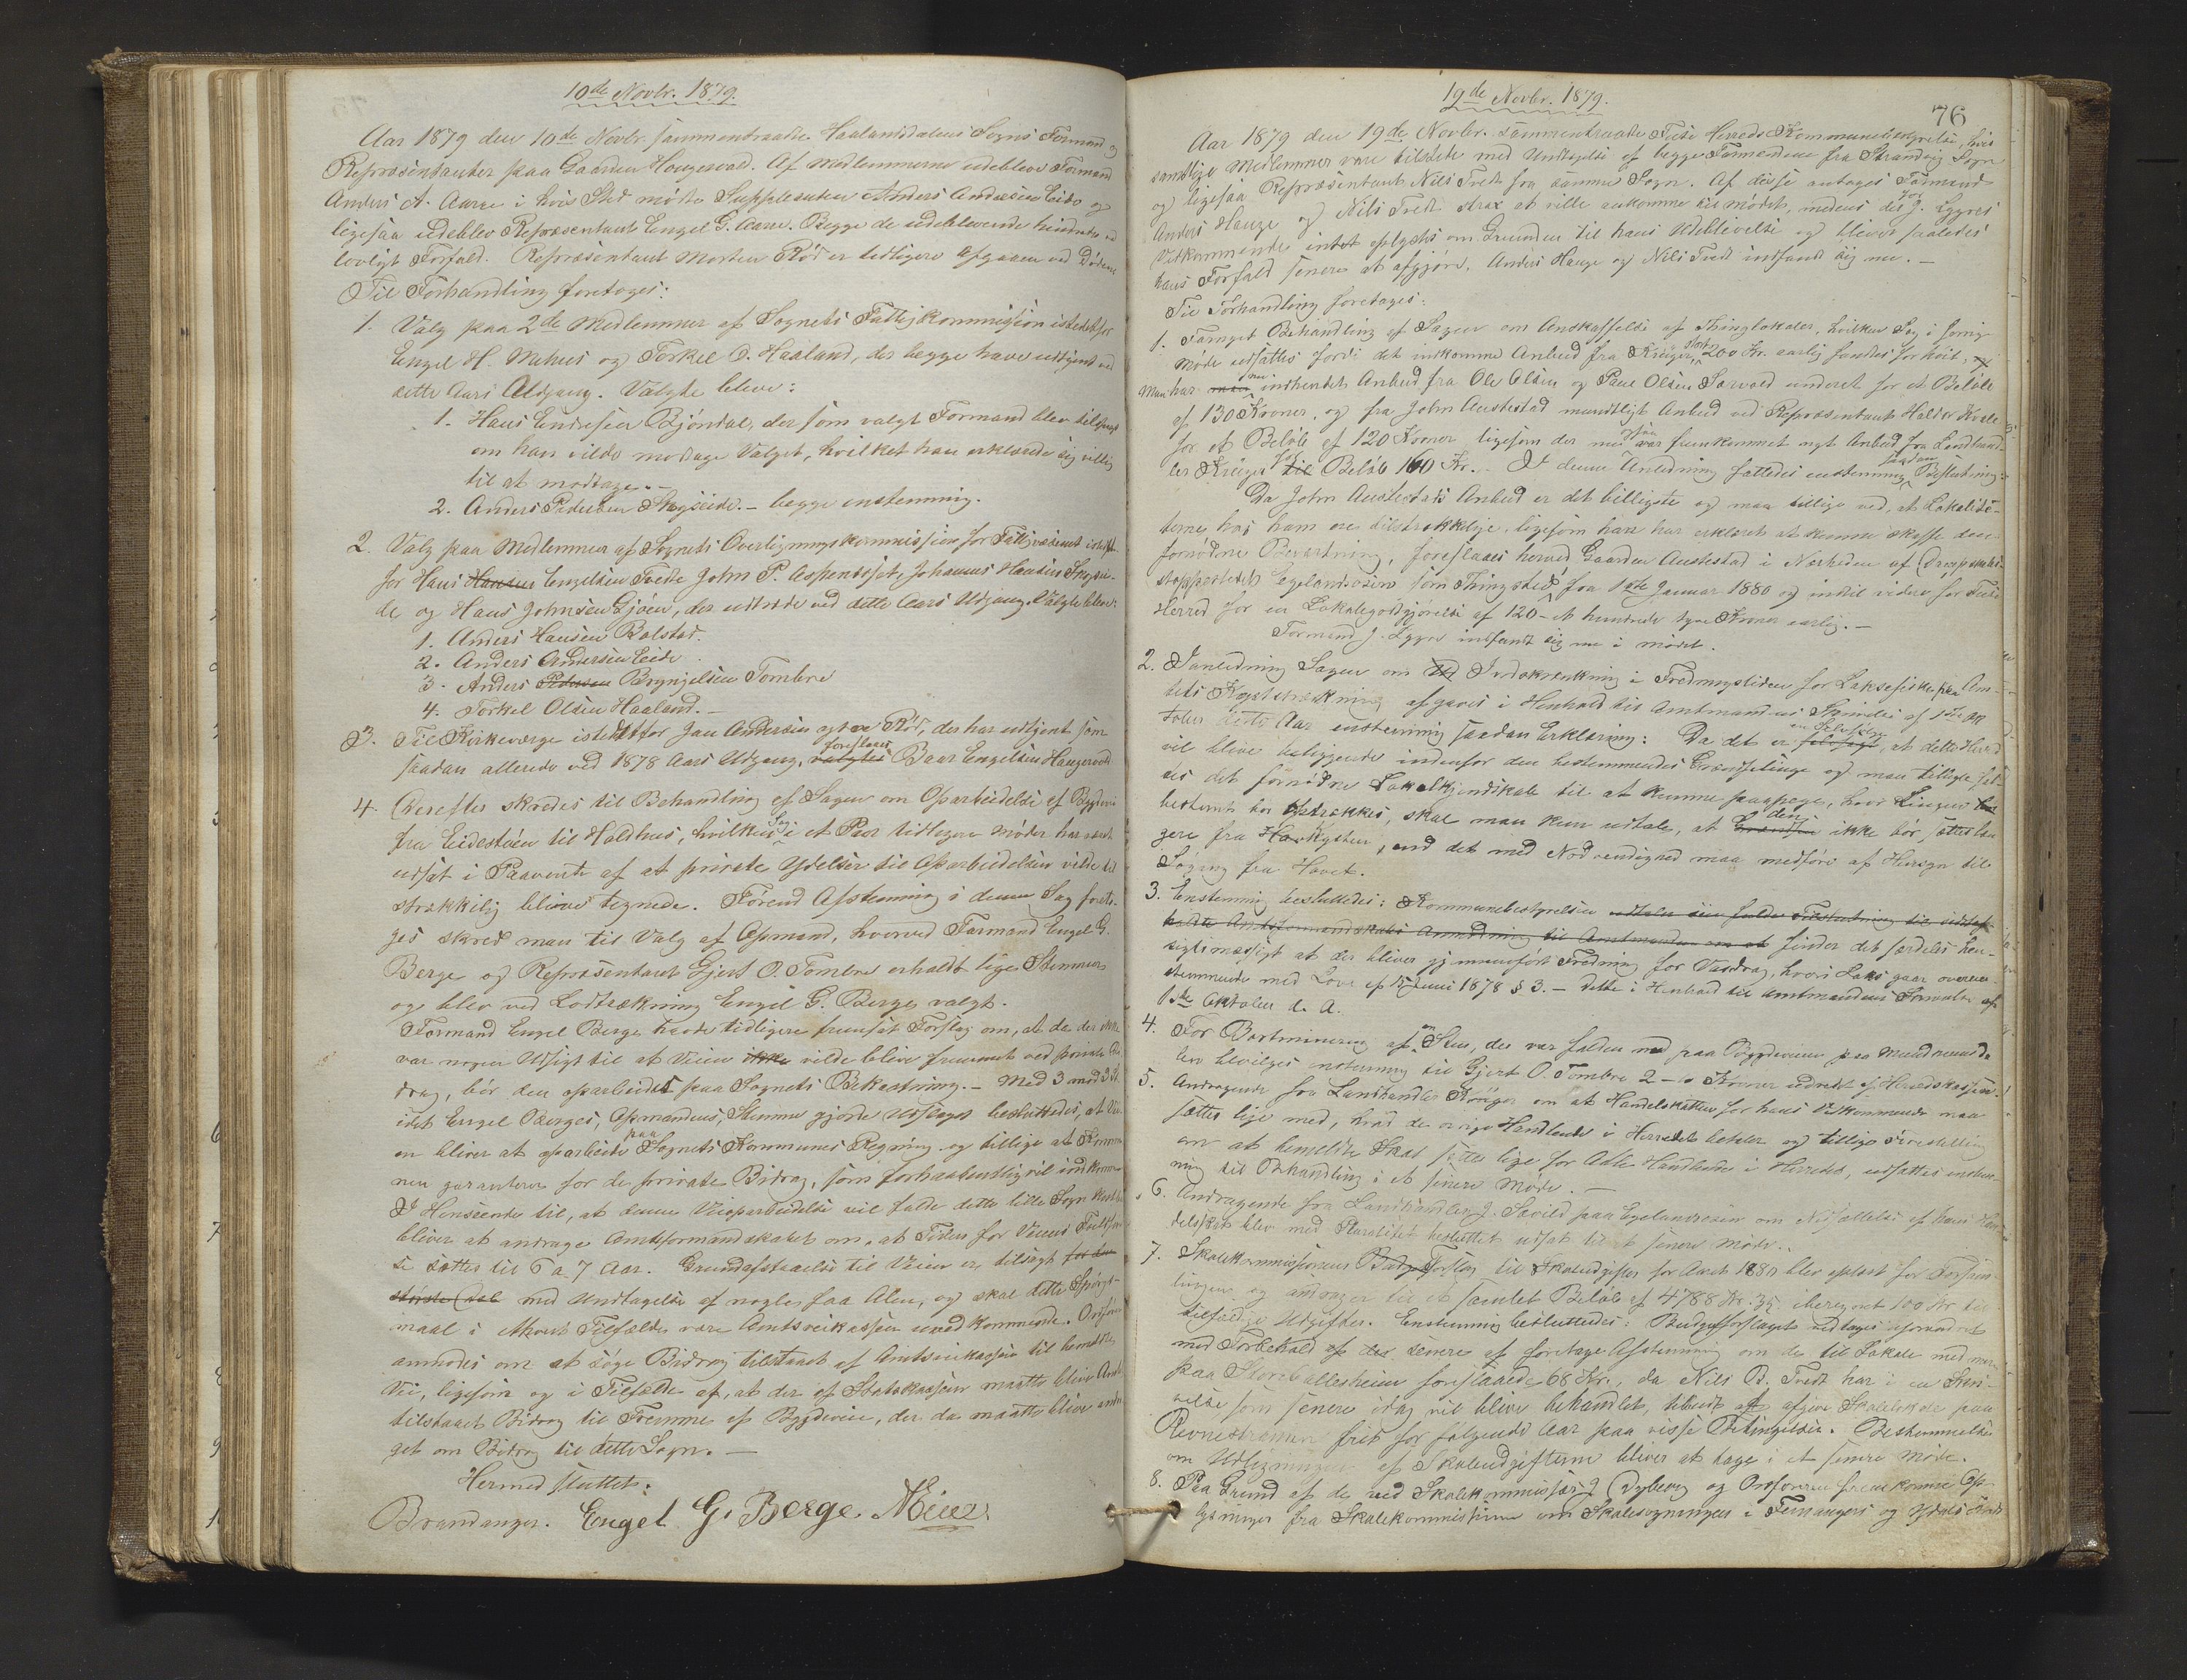 10de Novbr. 1879.
Aar 1879 den 10de Novbr. sammentraadte Haalandsdalens Sogns Formænd og
Repræsentanter paa Gaarden Haugervold. Af Medlemmerne udeblev Formand
Anders A. Aarre i hvis Sted mødte Supplesanten Anders Andersen Eide og
ligesaa udeblev Repræsentant Engel G. Aarre. Begge de udeblevende hindrede ved
lovligt Forfald. Repræsentant Morten Rød er tidligere afgaaen ved Døden.
Til Forhandling foretoges:
1. Valg paa 2de Medlemmer af Sognets Fattigkommission istedetfor
Engel H. Mehus og Torkel O. Haaland, der begge have udtjent ved
dette Aars Udgang. Valgte bleve:
1. Hans Endresen Bjøndal, der som valgt Formand blev tilspurgt
om han vilde modtage Valget, hvilket han erklærede sig villig
til at modtage.-
2. Anders Pedersen Skogseide. - begge enstemmig.
2. Valg paa Medlemmer af Sognets Overligningskommission for Fattigvæsenet istedet-
for Hans Hansen Engelsen Tvedte John P. Aspendsjet, Johannes Hansen Skogsei-
de og Hans Johnsen Gjøen, der udtræde ved dette Aars Udgang. Valgte bleve:
1. Anders Hansen Bolstad.
2. Anders Andersen Eide
3. Anders Pedersen Brynjelsen Tombre
4. Torkel Olsen Haaland.-
3. Til Kirkeværge istedetfor Jan Andersen Rød, der har udtjent som
saadan allerede ved 1878 Aars Udgang, valgtes foreslaaes Baar Engelsen Haugervold
4. Derefter skredes til Behandling af Sagen om Oparbeidelse af Bygdevei
fra Eidestøen til Holdhus, hvilken Sag i et Par tidligere Møder har været
udsat i Paavente af at private Ydelser til Oparbeidelsen vilde til-
strækkelig blive tegnede. Førend Afstemning i denne Sag foreto-
ges skred man til Valg af Opmand, hvorved Formand Engel G.
Berge og Repræsentant Gjert O. Tombre erholdt lige Stemmer
og blev ved Lodtrækning Engel G. Berge valgt.
Formand Engel Berge havde tidligere fremsat Forslag om, at da der ikke
var nogen Udsigt til at Veien ikke vilde blive fremmet ved private Bi-
drag, bør den oparbeides paa Sognets Bekostning. - Med 3 mod 3 St.
idet Engel Berges, Opmandens, Stemme gjorde Udslaget besluttedes, at Vei-
en bliver at oparbeide paa Sognets Kommunes Regning og tillige at Kommu-
nen garanterer for de private Bidrag, som forhaabentlig vil indkomme
I Henseende til, at denne Veioparbeidelse vil falde dette lille Sogn kostbar
bliver at andrage Amtsformandskabet om, at Tiden for Veiens Fuldføre-
se sættes til 6 a 7 Aar. Grundafstaaelse til Veien er tilsagt for den
største Del med Undtagelse af nogle faa Alen, og skal dette Spørgs-
maal i ethvert Tilfælde være Amtsveikassen uvedkommende. Ordføreren
anmodes om at søge Bidrag tilstaaet af Amtsveikassen til bemeldte
Vei, ligesom og i Tilfælde af, at der af Statskassen maatte blive Amtet
tilstaaet Bidrag til Fremme af Bygdeveie, der da maatte blive andra-
get om Bidrag til dette Sogn.-
Hermed sluttet.
Brandanger. Engel G. Berge. Meier.
19de Novbr. 1879.
76
Aar 1879 den 19de Novbr. sammentraadte Fuse Herreds Kommunebestyrelse, hvis
samtlige Medlemmer vare tilstede med Undtagelse af begge Formændene fra Strandvig Sogn
og ligesaa Repræsentant Nils Tvedt fra samme Sogn. Af disse antages Formand
Anders Hauge og Nils Tvedt strax at ville ankomme til Mødet, medens der for J. Lygres
Vedkommende intet oplystes om Grunden til hans Udeblivelse og bliver saaledes
hans Forfald senere at afgjøre. Anders Hauge og Nils Tvedt indfandt sig nu. -
Til Forhandling foretoges:
1. Fornyet Behandling af Sagen om Anskaffelse af Thinglokaler, hvilken Sag i forrige
Møde udsattes fordi det indkomne Anbud fra Krüger, 200 Kr. aarlig fandtes for høit,
Man har nu indhendet Anbud fra Ole Olsen og Paul Olsen Sævold underet for et Beløb
af 130 Kroner, og fra John Austestad mundtligt Anbud ved Repræsentant Haldor Kvale
for et Beløb af 120 Kroner ligesom der nu ogsaa var fremkommet nyt Anbud fra Landhand-
ler Krüger til Beløb 160 Kr. - I denne Anledning fattedes enstemmig saadan Beslutning:
Da John Austestads Anbud er det billigste og man tillige ved, at Lokalite-
terne hos ham ere tilstrækkelige, ligesom han har erklæret at kunne skaffe den
fornødne Bevertning, foreslaaes herved Gaarden Austestad i Nærheden af Dampskibs-
stoppestedet Egelandsosen som Thingsted fra 1ste Januar 1880 og indtil videre for Fuse
Herred for en Lokalegodtgjørelse af 120 - et hundrede tyve Kroner aarlig.-
Formand J. Lygre indfandt sig nu i Mødet.
2. I Anledning Sagen om Indskrænkning i Fredningstiden for Laksefiske paa Am-
tets Kyststrækning afgaves i Henhold til Amtmandens Skrivelse af 1ste Ok-
tober dette Aar enstemmig saadan Erklæring: Da det er en Selvfølge, at dette Herred
vil blive beliggende indenfor den bestemmendes Grændselinge og man tillige føl-
es det fornødne Lokalkjendskab til at kunne paapege, hvor Linjen
bestemt bør optrækkes, skal man kun udtale, at den Grændsen ikke bør sættes læn-
gere fra Havkysten, end det med Nødvendighed maa medføre af Hensyn til
Søgang fra Havet.
3. Enstemmig besluttedes: Kommunebestyrelsen udtaler sin fulde Tilslutning til
Amtsformandskabets Anmodning til Amtmanden om at finder det særdeles hen-
sigtsmæssigt at der bliver gjennemført Fredning for Vasdrag, hvori Laks gaar overens-
stemmende med Lov af Juni 1878 § 3. - dette i Henhold til Amtmandens Skrivelse af
1ste Oktober d. A.
4. For Bortminering af en Sten, der var falden ned paa Bygdeveien paa
bevilges enstemmig til Gjert O. Tombre 2 - to Kroner udredet af Herredskassen.
5. Andragende fra Landhandler Krüger om at Handelskatten for hans Vedkommende maa
sættes lige med, hvad de øvrige Handlende i Herredet betaler og tillige Forestilling
om at bemeldte Skat sættes lige for Alle Handlende i Herredet, udsattes enstem-
mig til Behandling i et senere Møde. -
6. Andragende fra Landhandler J. Sævild paa Egelandsosen om Nedsættelse af hans Han-
delsskat blev med Pluralitet besluttet udsat til et senere Møde.
7. Skolekommissionens Budgetforslag til Skoleudgifter for Aaret 1880 blev oplæst for Forsam-
lingen og andrager til et samlet Beløb af 4788 Kr. 35. iberegnet 100 Kr. til
tilfældige Udgifter. Enstemmig besluttedes: Budgetforslaget vedtages uforandret
med Forbehold af senere at foretage Afstemning om de til Lokale med mere
paa Storeballesheim foreslaaede 68 Kr., da Nils B. Tvedt har i en Skri-
velse som senere idag vil blive behandlet, tilbudt at afgive Skolelokale paa
Revnestrømmen frit for følgende Aar paa visse Betingelser. Bestemmelse
om Udligningen af Skoleudgifterne bliver at tage i et senere Møde.
8. Paa Grund af de ved Skolekommissær J. Dyberg og Ordføreren fremkomne Op-
lysninger fra Skolekommissionen om Skolesøgningen i Femangers og Ydals